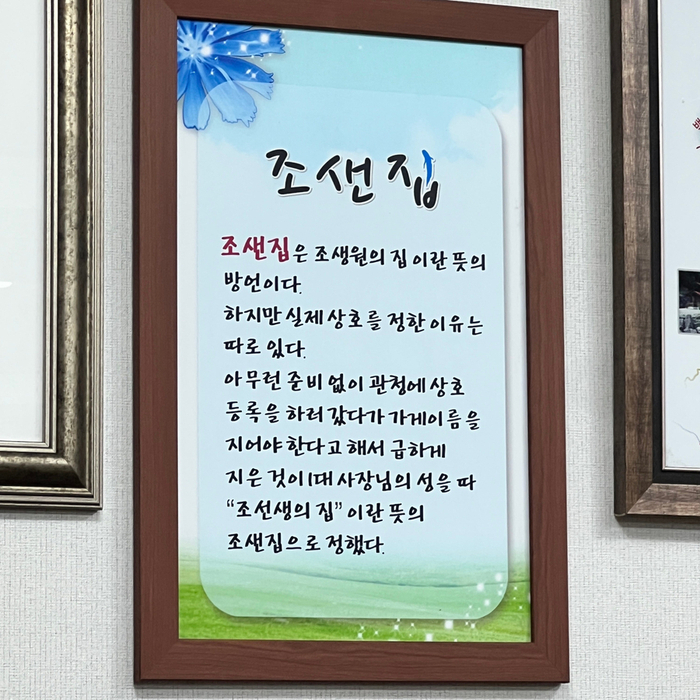 조샌집
조샌집은 조생원의 집 이란 뜻의
방언이다.
하지만 실제 상호를 정한 이유는
따로 있다.
아무런 준비 없이 관청에 상호
등록을 하러 갔다가 가게이름을
지어야 한다고 해서 급하게
지은 것이 1대 사장님의 성을 따
“조선생의 집” 이란 뜻의
조샌집으로 정했다.